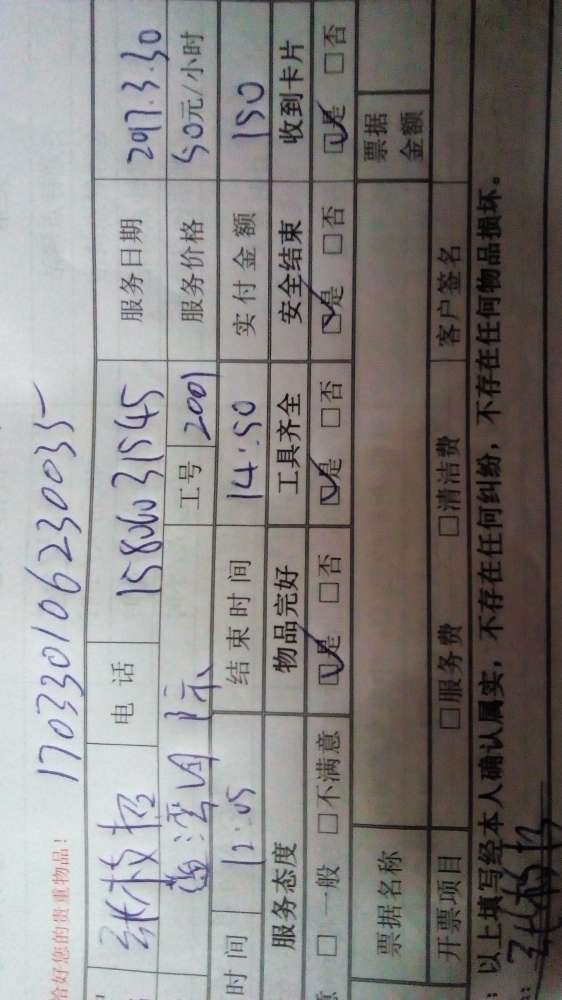 170330106230035
给好您的贵重物品!
张枝招 电话 15860631545 服务日期 2017.3.30
蓝湾国际 工号 2001 服务价格 50元/小时
时间 12:05 结束时间 14:50 实付金额 150
服务态度 物品完好 工具齐全 安全结束 收到卡片
□一般 □不满意 ☑是 □否 ☑是 □否 ☑是 □否 ☑是 □否
票据名称 票据金额
开票项目 □服务费 □清洁费 客户签名
以上填写经本人确认属实,不存在任何纠纷,不存在任何物品损坏。